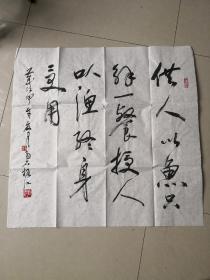 供人以鱼只
解一餐授人
以渔终身
受用